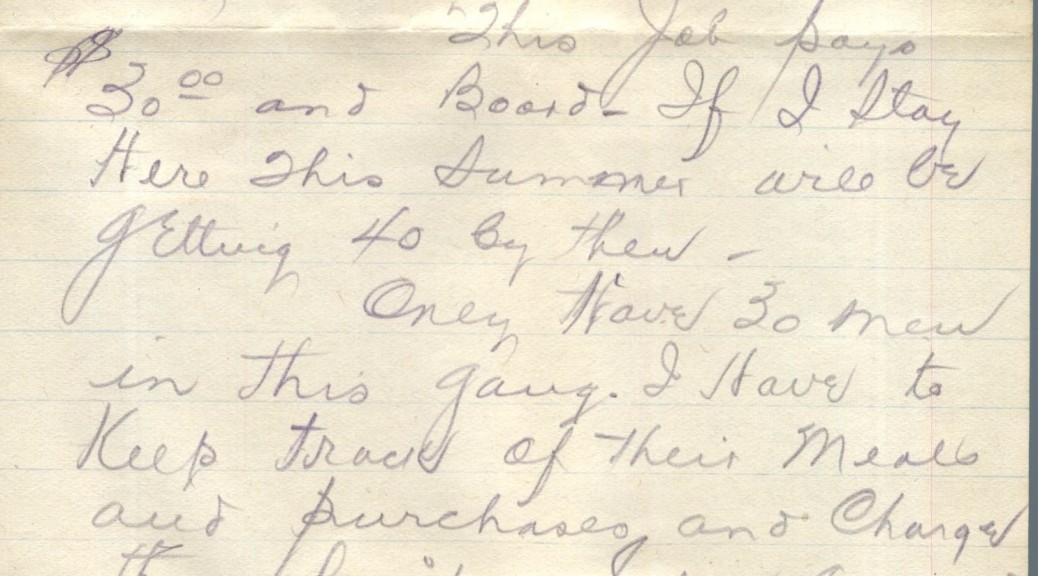 This Job pays
$30.00 and Board - If I Stay
Here This Summer will be
gEtting 40 by then -
Only Have 30 men
in This gang. I Have to
Keep track of Their Meals
and purchases, and Charge